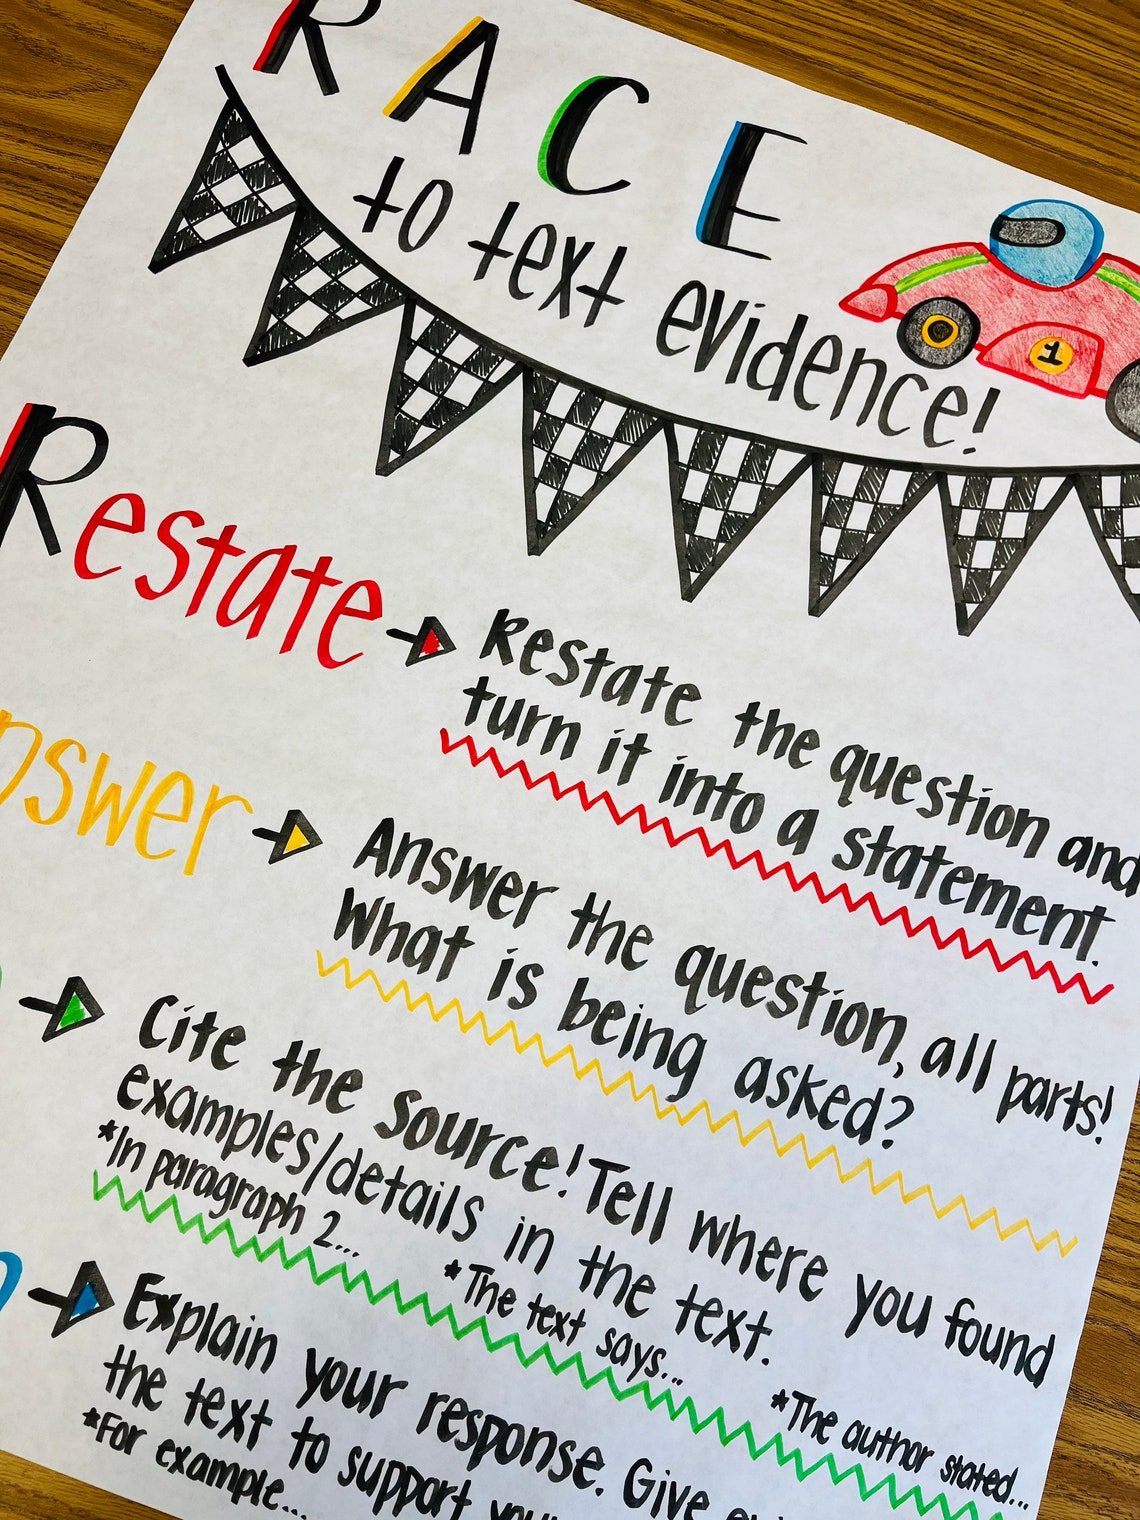 RACE
to text evidence!
1
Restate
Restate the question and
turn it into a statement.
nswer
Answer the question, all parts!
What is being asked?
Cite the source! Tell where you found
examples/details in the text.
*In paragraph 2... *The text says... *The author stated...
Explain your response. Give
the text to support
*For example...